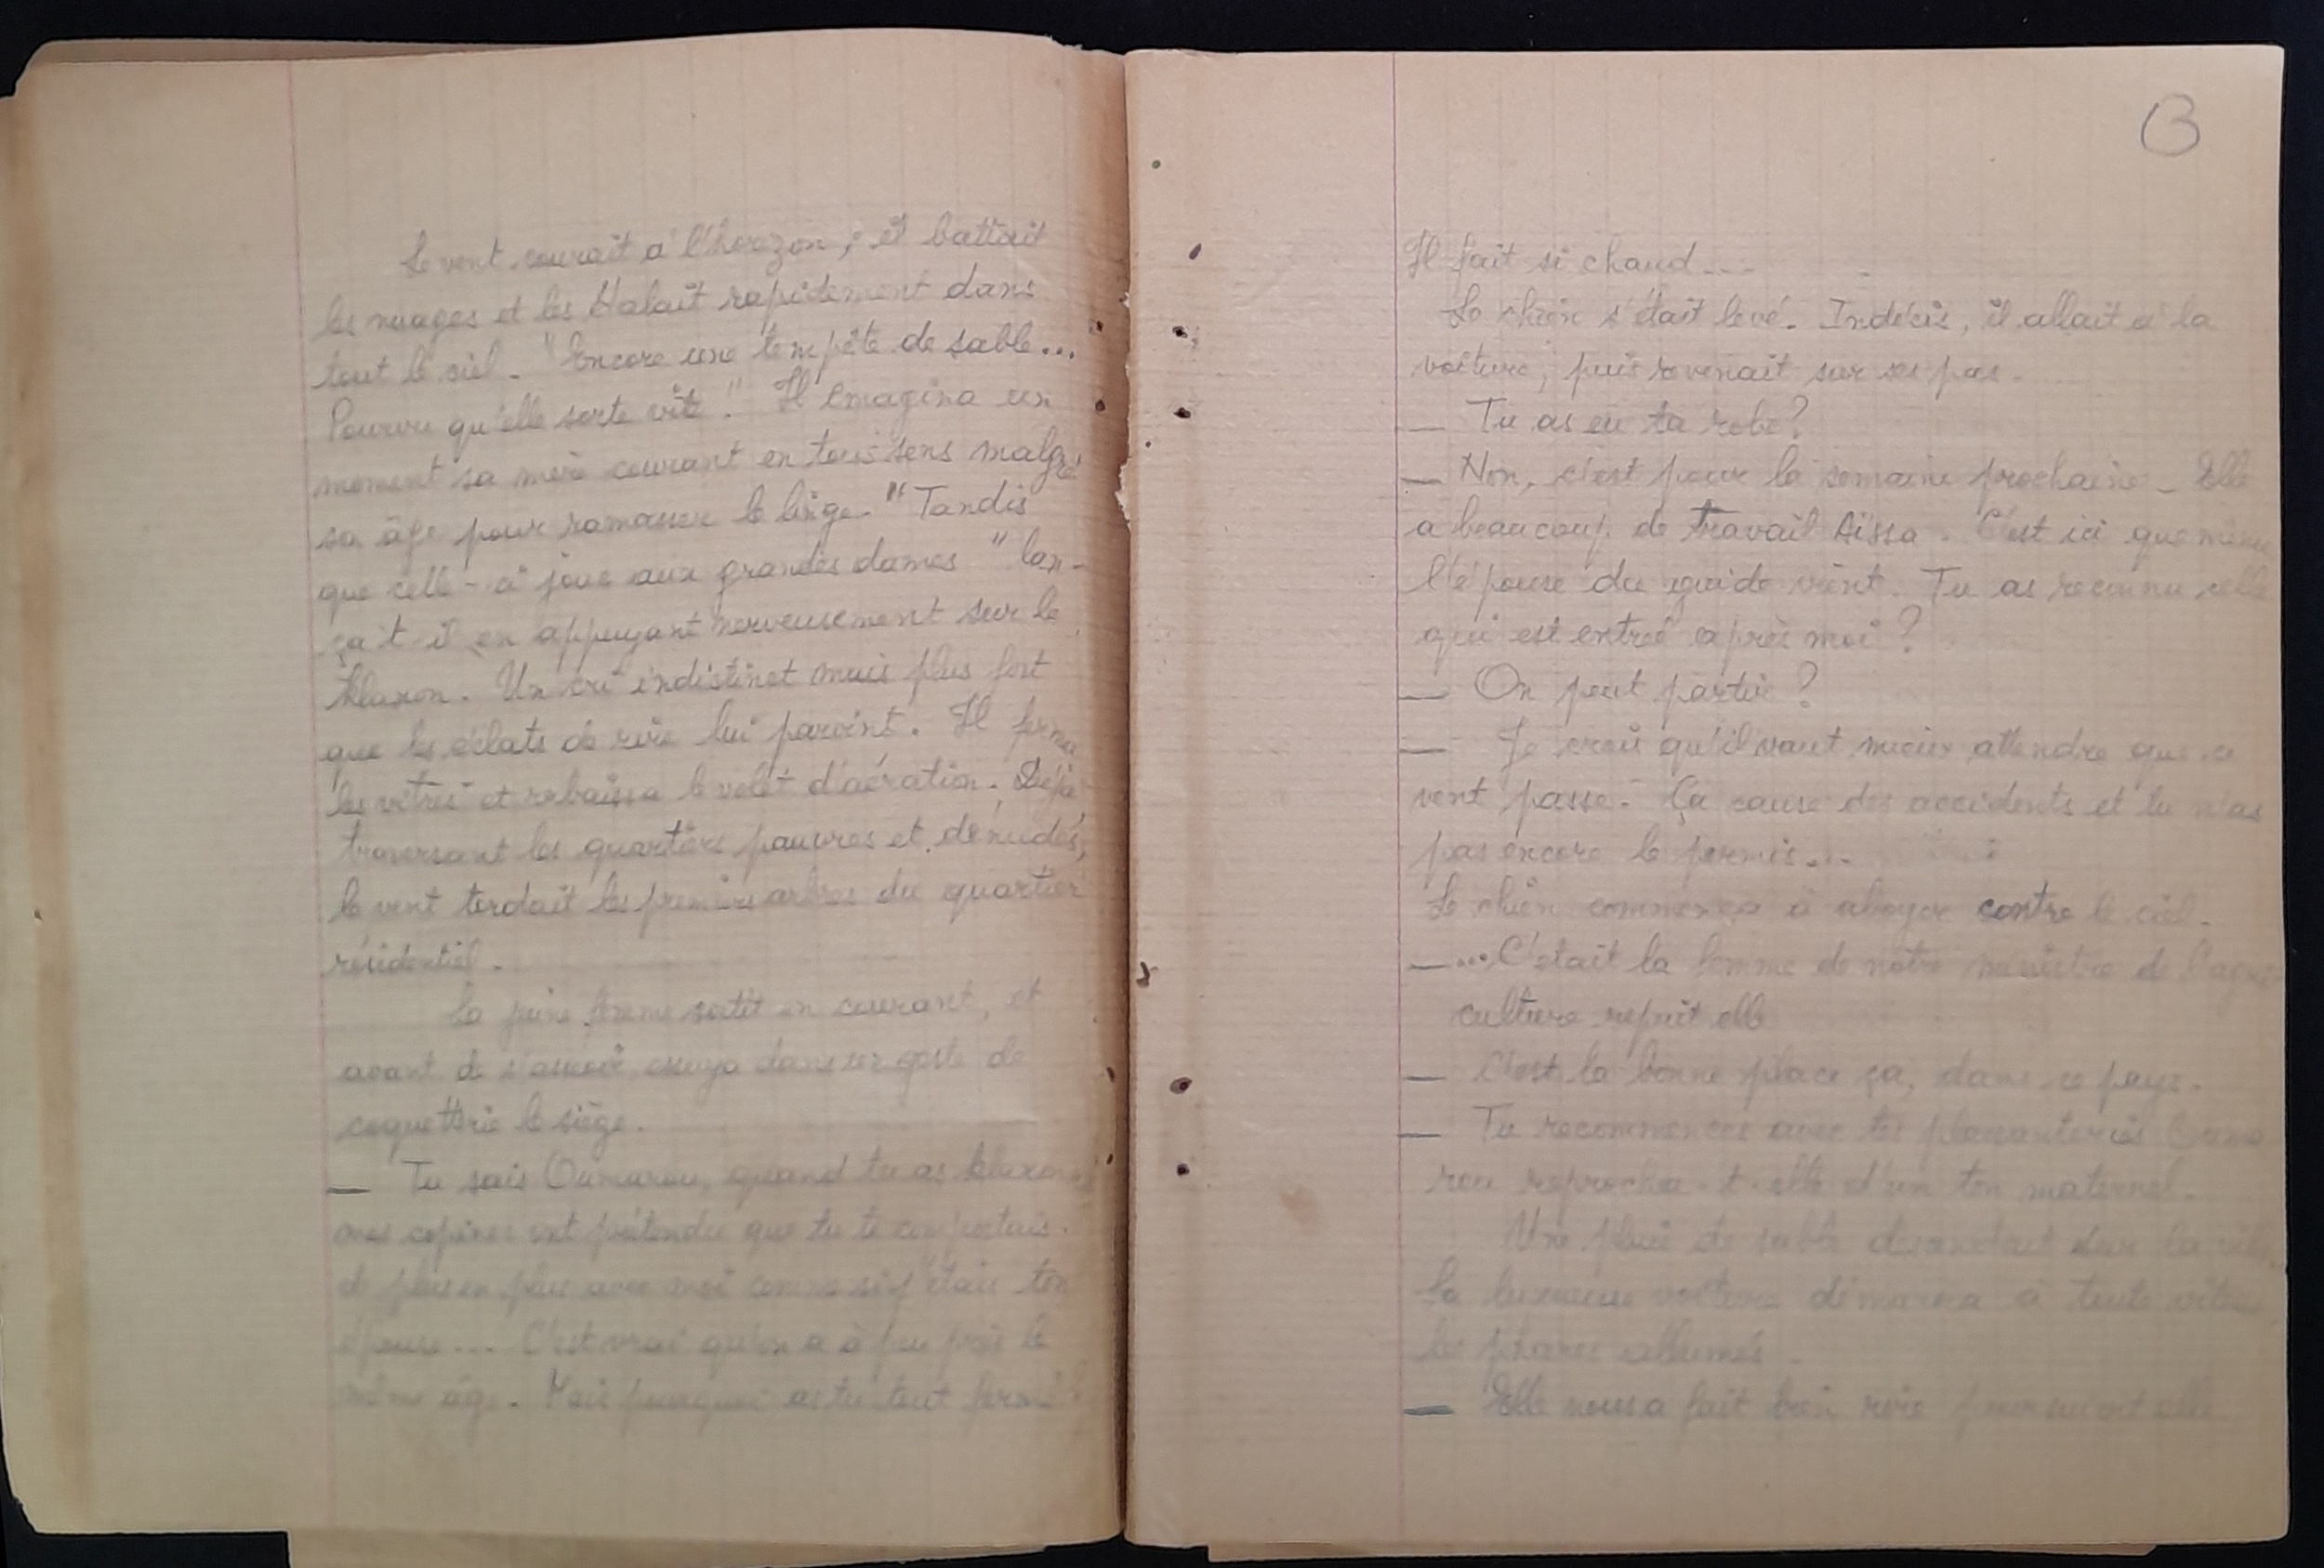 Le vent courait à l'horizon ; il battait
les nuages et les étalait rapidement dans
tout le ciel. "Encore une tempête de sable...
Pourvu qu'elle sorte vite." Il imagina un
moment sa mère courant en tous sens malgré
sa âge pour ramasser le linge. "Tandis
que celle-ci joue aux grandes dames" lan-
çait-il en appuyant nerveusement sur le
klaxon. Un cri indistinct mais plus fort
que les éclats de rire lui parvint. Il ferma
les vitres et rabaissa le volet d'aération. Déjà,
traversant les quartiers pauvres et dénudés,
le vent tordait les premiers arbres du quartier
résidentiel.
La jeune femme sortit en courant, et
avant de s'asseoir, essuya dans un geste de
coquetterie le siège.
— Tu sais Oumarou, quand tu as klaxonné
mes copines ont prétendu que tu te comportais
de plus en plus avec moi comme si j'étais ton
épouse... C'est vrai qu'on a à peu près le
même âge. Mais pourquoi as tu tout fermé ?
13
Il fait si chaud...
Le chien s'était levé. Indécis, il allait à la
voiture, puis revenait sur ses pas.
— Tu as eu ta robe ?
— Non, c'est pour la semaine prochaine. Elle
a beaucoup de travail Aïssa. C'est ici que même
l'épouse du guide vient. Tu as reconnu celle
qui est entrée après moi ?
— On peut partir ?
— Je crois qu'il vaut mieux attendre que ce
vent passe. Ça cause des accidents et tu n'as
pas encore le permis...
Le chien commença à aboyer contre le ciel.
—...C'était la femme de notre ministre de l'agri-
culture reprit elle
— C'est la bonne place ça, dans ce pays.
— Tu recommences avec tes plaisanteries Ouma
rou reprocha-t-elle d'un ton maternel.
Une pluie de sable descendait sur la ville.
La luxueuse voiture démarra à toute vitesse
les phares allumés.
— Elle nous a fait bien rire poursuivit elle